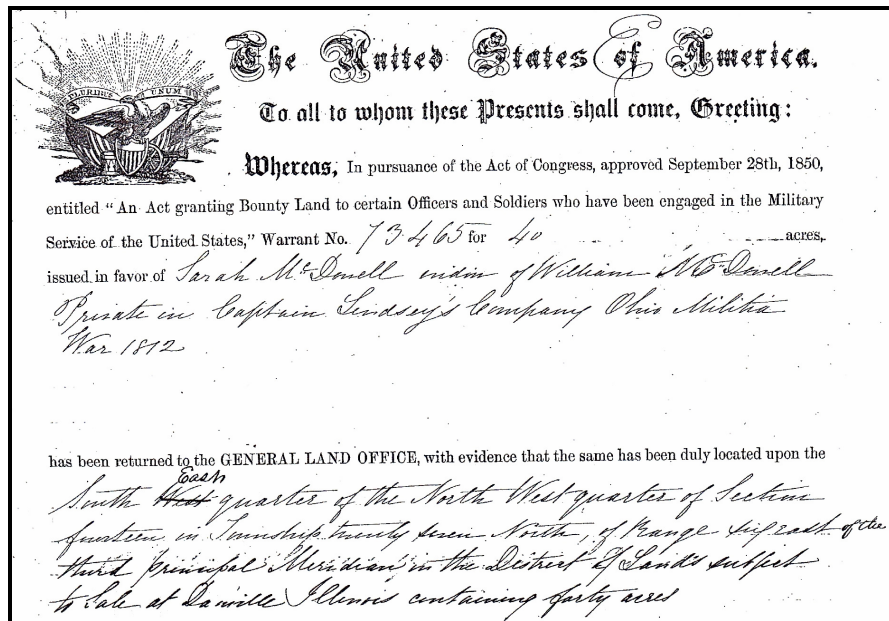 PLURIBUS UNUM
The United States Of America.
To all to whom these Presents shall come, Greeting:
Whereas, In pursuance of the Act of Congress, approved September 28th, 1850,
entitled "An Act granting Bounty Land to certain Officers and Soldiers who have been engaged in the Military
Service of the United States," Warrant No. 73.465 for 40 acres,
issued in favor of Sarah McDowell widow of William McDowell
Private in Captain Lindsey's Company Ohio Militia
War 1812
has been returned to the GENERAL LAND OFFICE, with evidence that the same has been duly located upon the
East
South West quarter of the North West quarter of Section
fourteen in Township twenty seven North, of Range six east of the
third principal Meridian in the District of Lands subject
to Sale at Danville Illinois containing forty acres